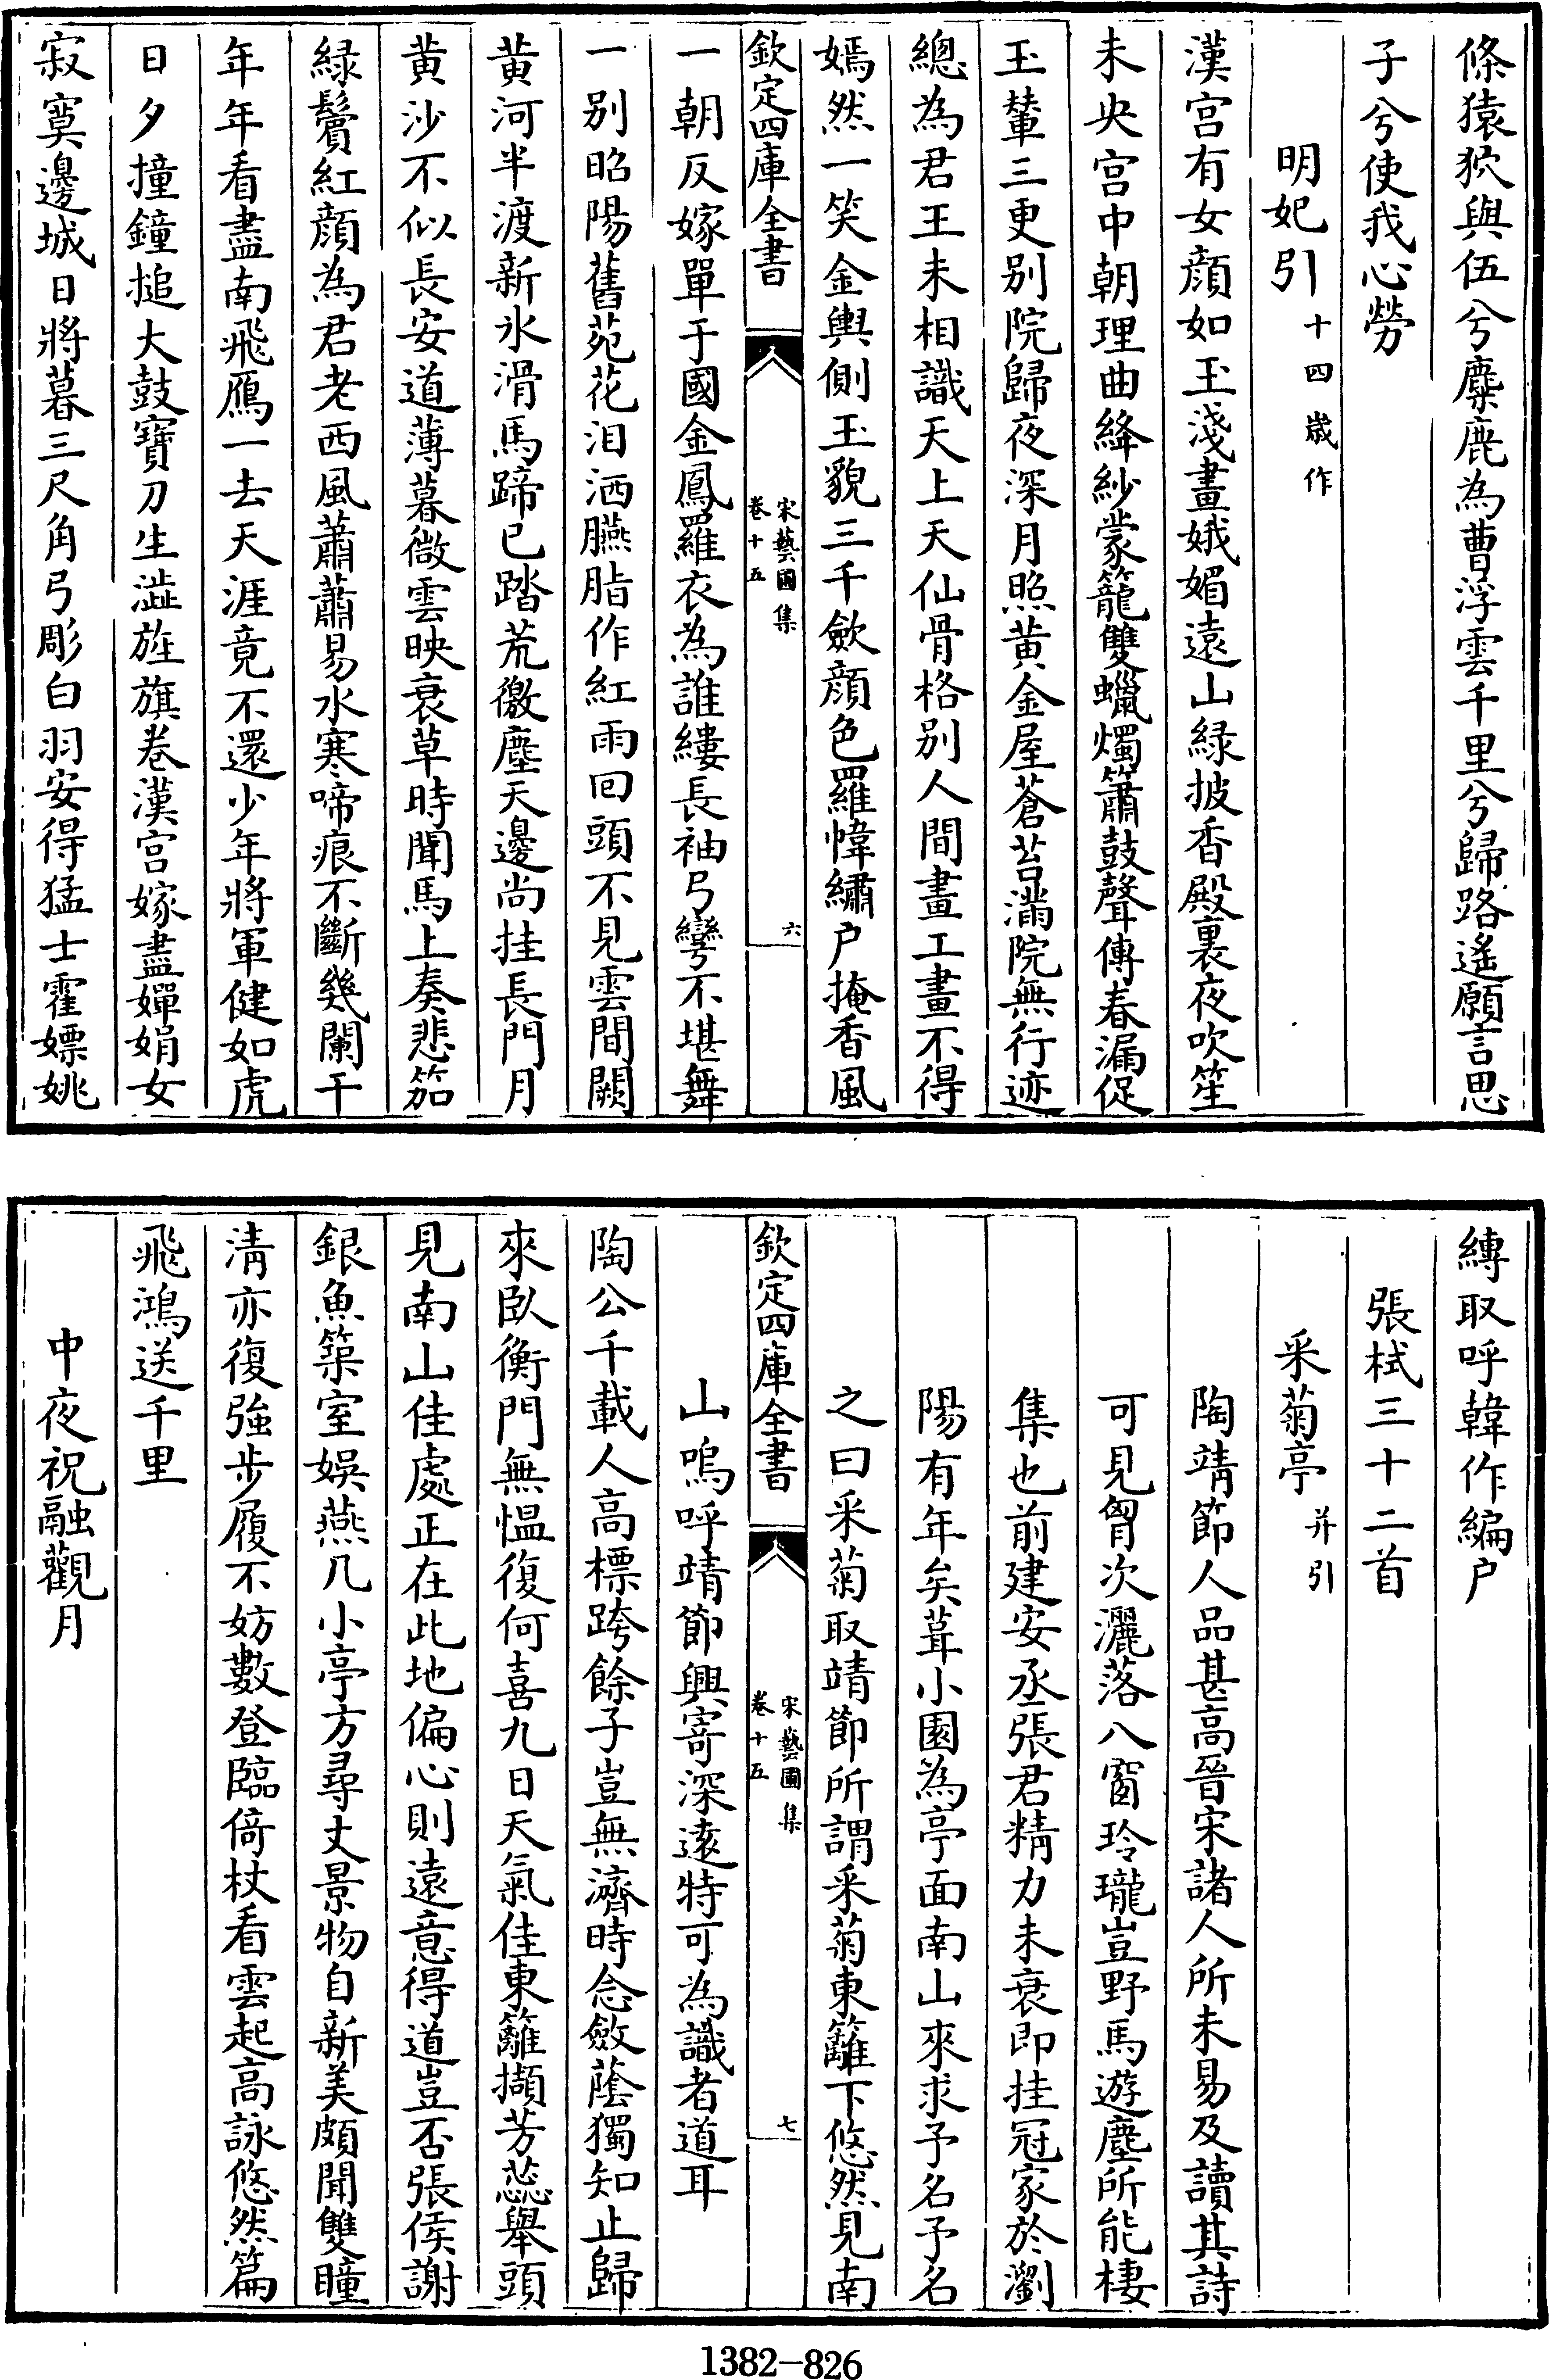 條猿狖與伍兮麋鹿為曹浮雲千里兮歸路遙願言思
子兮使我心勞
明妃引十四歲作
漢宫有女顔如玉淺畫娥媚遠山緑披香殿裏夜吹笙
未央宫中朝理曲絳紗蒙籠雙蠟燭簫鼓聲傳春漏促
玉輦三更别院歸夜深月照黄金屋蒼苔滿院無行迹
總為君王未相識天上天仙骨格别人間畫工畫不得
嫣然一笑金輿側玉貌三千歛顔色羅幃繡户掩香風
欽定四庫全書
宋藝圃集
卷十五
六
一朝反嫁單于國金鳳羅衣為誰縷長袖弓彎不堪舞
一别昭陽舊苑花泪洒臙脂作紅雨回頭不見雲間闕
黄河半渡新氷滑馬蹄已踏荒徼塵天邊尚挂長門月
黄沙不似長安道薄暮微雲映衰草時聞馬上奏悲笳
緑鬢紅顔為君老西風蕭蕭易水寒啼痕不斷幾闌干
年年看盡南飛鴈一去天涯竟不還少年將軍健如虎
日夕撞鐘搥大鼓寶刀生澁旌旗卷漢宫嫁盡嬋娟女
寂寞邊城日將暮三尺角弓彫白羽安得猛士霍嫖姚
縳取呼韓作編户
張栻三十二首
采菊亭并引
陶靖節人品甚高晉宋諸人所未易及讀其詩
可見胷次灑落八窗玲瓏豈野馬遊塵所能棲
集也前建安丞張君精力未衰即挂冠家於瀏
陽有年矣葺小園為亭面南山來求予名予名
之曰采菊取靖節所謂采菊東籬下悠然見南
欽定四庫全書
宋藝圃集
卷十五
七
山嗚呼靖節興寄深遠特可為識者道耳
陶公千載人高標跨餘子豈無濟時念斂蔭獨知止歸
來臥衡門無愠復何喜九日天氣佳東籬擷芳蕊舉頭
見南山佳處正在此地偏心則遠意得道豈否張侯謝
銀魚築室娱燕几小亭方尋丈景物自新美頗聞雙瞳
清亦復強步履不妨數登臨倚杖看雲起高詠悠然篇
飛鴻送千里
中夜祝融觀月
1382-826